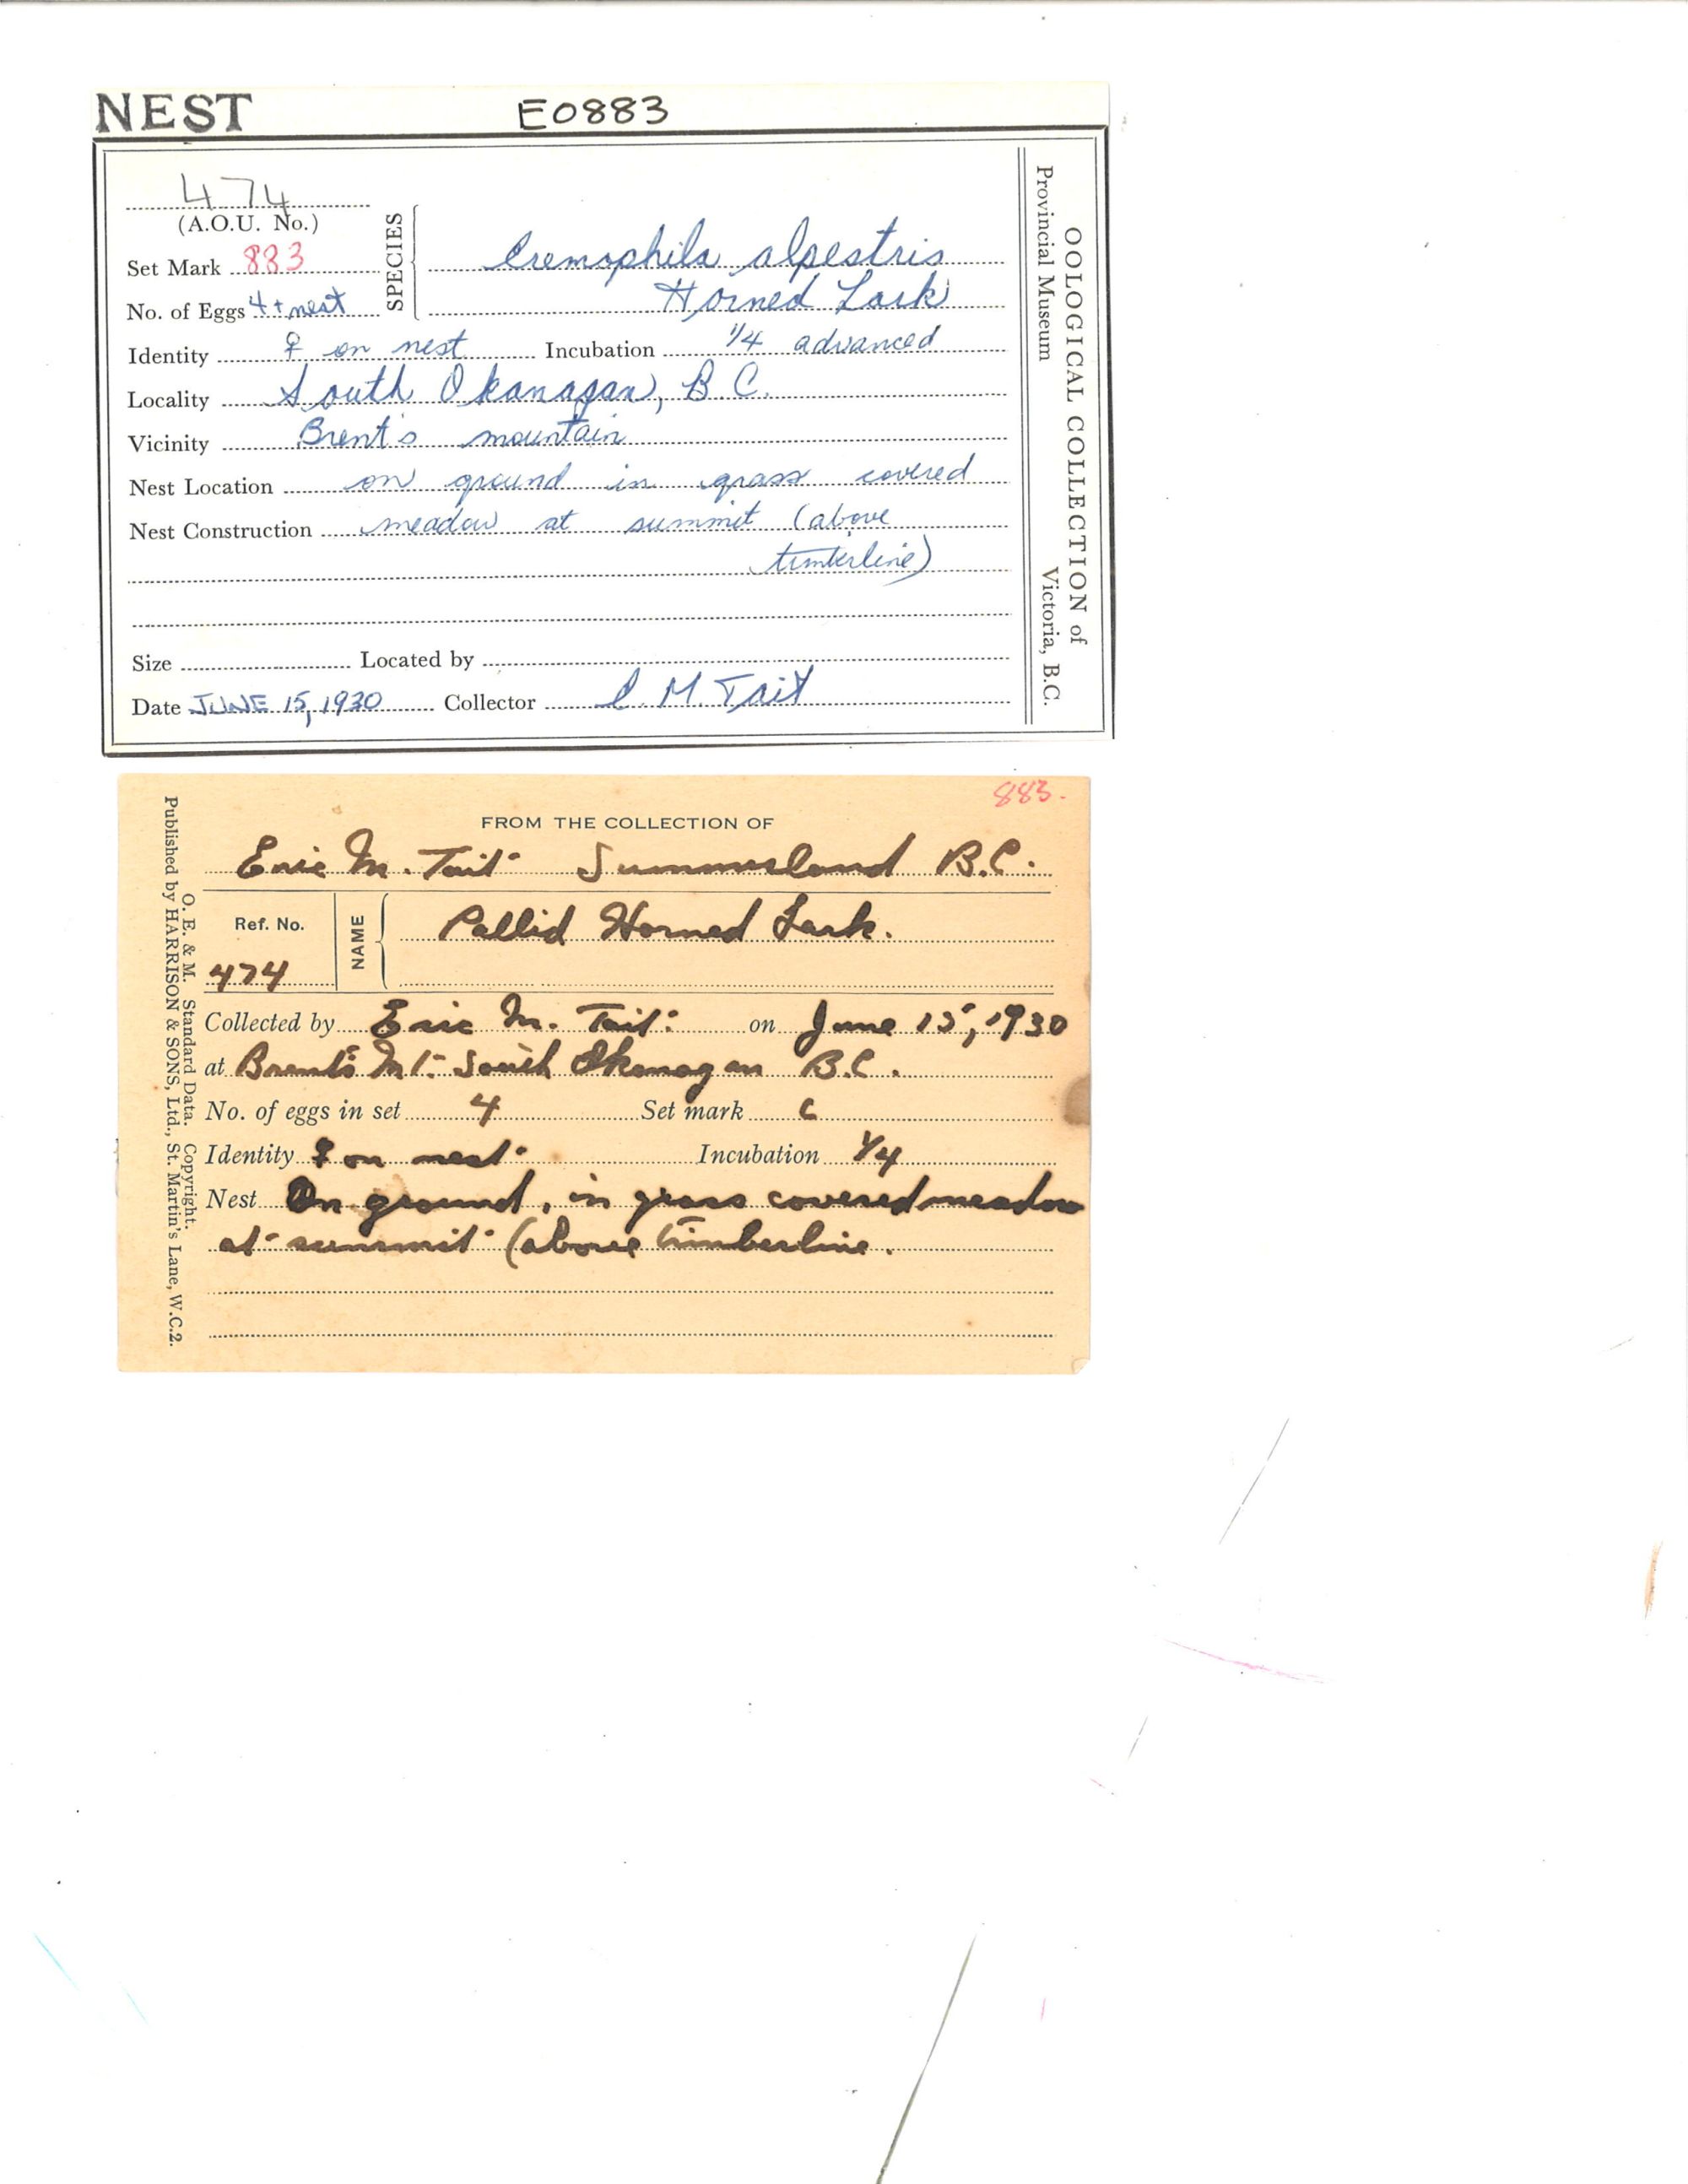 NEST E0883
474
(A.O.U. No.)
Set Mark 883
No. of Eggs 4 + nest
SPECIES
Eremophila alpestris
Horned Lark
Identity ♀ on nest Incubation 1/4 advanced
Locality South Okanagan, B.C.
Vicinity Brent's mountain
Nest Location on ground in grass covered
Nest Construction meadow at summit (above
timberline)
Size Located by
Date JUNE 15, 1930 Collector E. M. Tait
OOLOGICAL COLLECTION of
Provincial Museum Victoria, B.C.
883.
FROM THE COLLECTION OF
Eric M. Tait Summerland B.C.
Ref. No.
474
NAME
Pallid Horned Lark.
Collected by Eric M. Tait. on June 15, 1930
at Brent's Mt. South Okanagan B.C.
No. of eggs in set 4 Set mark C
Identity ♀ on nest Incubation 1/4
Nest On ground, in grass covered meadow
at summit (above timberline.
O. E. & M. Standard Data. Copyright.
Published by HARRISON & SONS, Ltd., St. Martin's Lane, W.C.2.